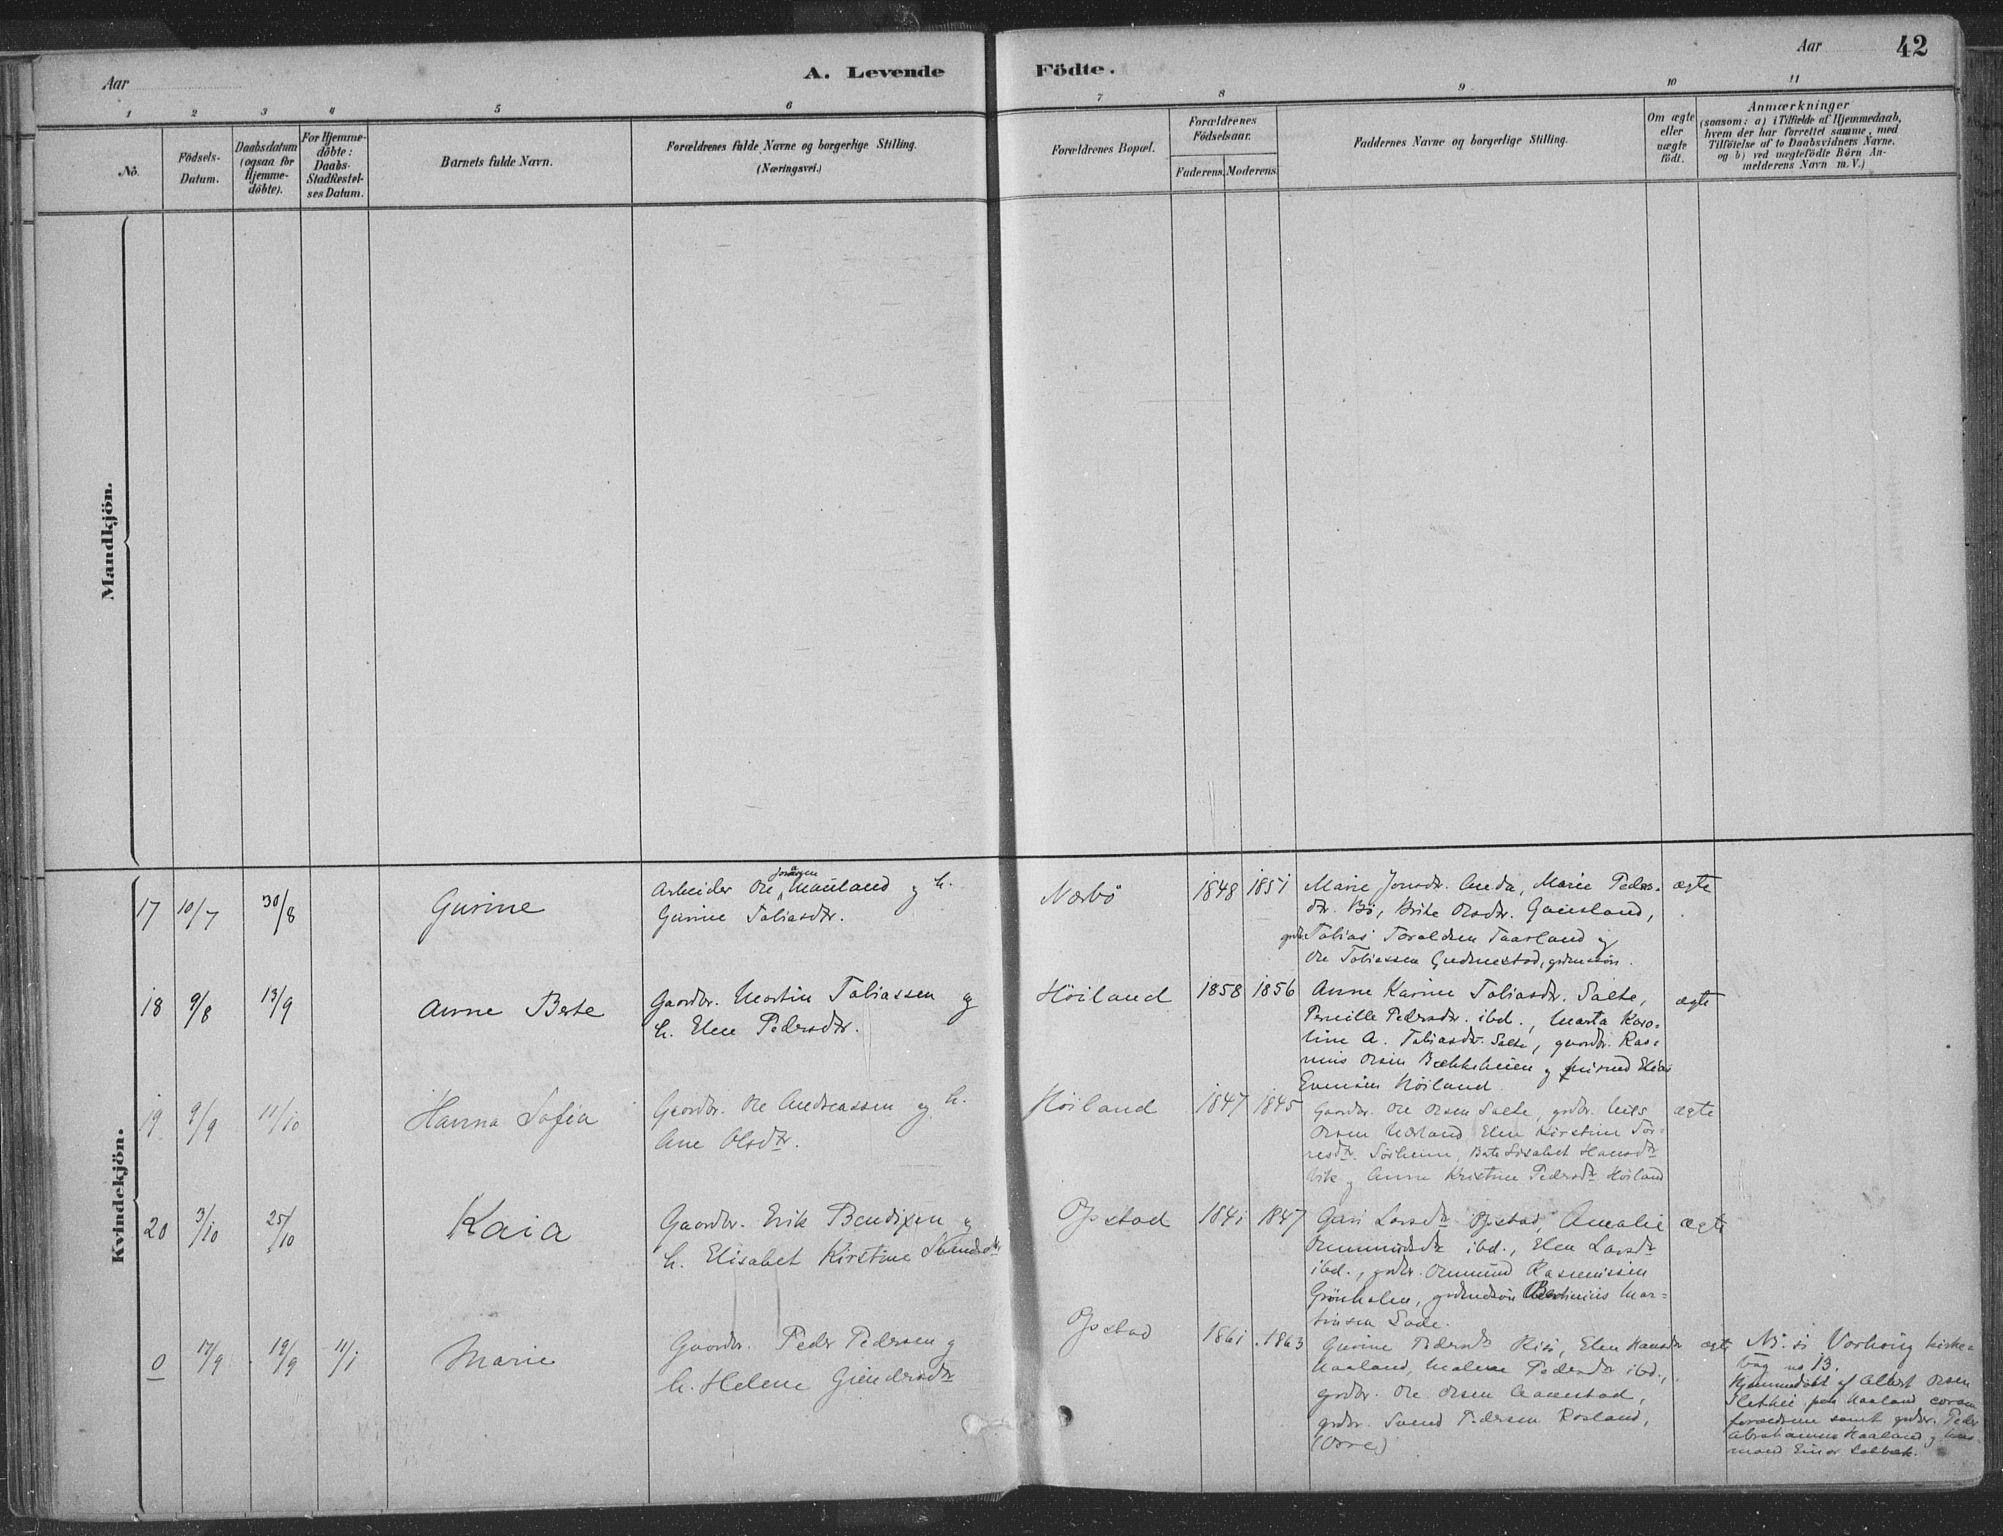 Aar
A. Levende
Födte.
Aar
42
1 2 3 4 5 6 7 8 9 10 11
No.
Födsels-
Datum.
Daabsdatum
(ogsaa for
Hjemme-
döbte).
For Hjemme-
döbte:
Daabs-
Stadfæstel-
ses Datum.
Barnets fulde Navn.
Forældrenes fulde Navne og borgerlige Stilling.
(Næringsvei.)
Forældrenes Bopæl.
Forældrenes
Födselsaar.
Faderens. Moderens.
Faddernes Navne og borgerlige Stilling.
Om ægte
eller
uægte
födt.
Anmærkninger
(saasom: a) i Tilfælde af Hjemmedaab,
hvem der har forrettet samme, med
Tilföielse af to Daabsvidners Navne,
og b) ved uægtefödte Börn An-
melderens Navn m. V.)
Mandkjön.
Kvindekjön.
17 10/7 30/8
Gurine
Arbeider Ole Mauland og h.
Gurine Tobiasdtr.
Nærbö
1848 1851
Marie Jonsdr. Anda, Marie Peders-
dtr. Bö, Brite Olsdtr. Gausland,
Tobias Taraldsen Taarland og
Ole Tobiassen Gudmestad, grdmdsön.
ægte
18 9/8 13/9
Anne Berte
Gaardbr. Martin Tobiassen og
h. Elen Pedersdtr.
Höiland
1858 1856
Anne Karine Tobiasdtr. Salte,
Pernille Pedersdtr. ibd., Marta Karo-
line A. Tobiasdtr. Salte, gaardbr. Ras-
mus Olsen Bækkeheien og
Höiland.
ægte
19 9/9 11/10
Hanna Sofia
Gaardbr. Ole Andreassen og h.
Ane Olsdtr.
Höiland
1847 1845
Gaardbr. Ole Olsen Salte, grdbr. Nils
Olsen Nærland, Elen Kirstine Tör-
resdtr. Sörheim, Berte Lisabet Hansdtr
Vik og Anne Kristine Pedersdtr Höiland
ægte
20 3/10 25/10
Kaia
Gaardbr. Erik Bendixen og
h. Elisabet Kirstine Svendsdtr
Opstad
1841 1847
Guri Larsdtr Opstad, Amalie
Ommundsdtr ibd., Elen Larsdtr
ibd., grdbr. Ommund Rasmussen
Grönholen, grdmdsön Bertinius Mar-
tinsen Lode.
ægte
0 17/9 19/9 11/1
Marie
Gaardbr. Peder Pedersen og
h. Helene Giendersdtr
Opstad
1861 1863
Gurine Pedersdtr Risi, Elen Hansdtr
Haaland, Malene Pedersdtr ibd.,
grdbr. Ole Olsen Aanestad,
grdbr. Svend Pedersen Rosland,
(Orre)
ægte
N. i Varhoug kirke-
bog no 13.
Hjemmedöbt af Albert Olsen
Slethei paa Haaland coram
forældrene samt grdbr. Peder
Abrahamsen Haaland og hus-
mand Einar Solbak.